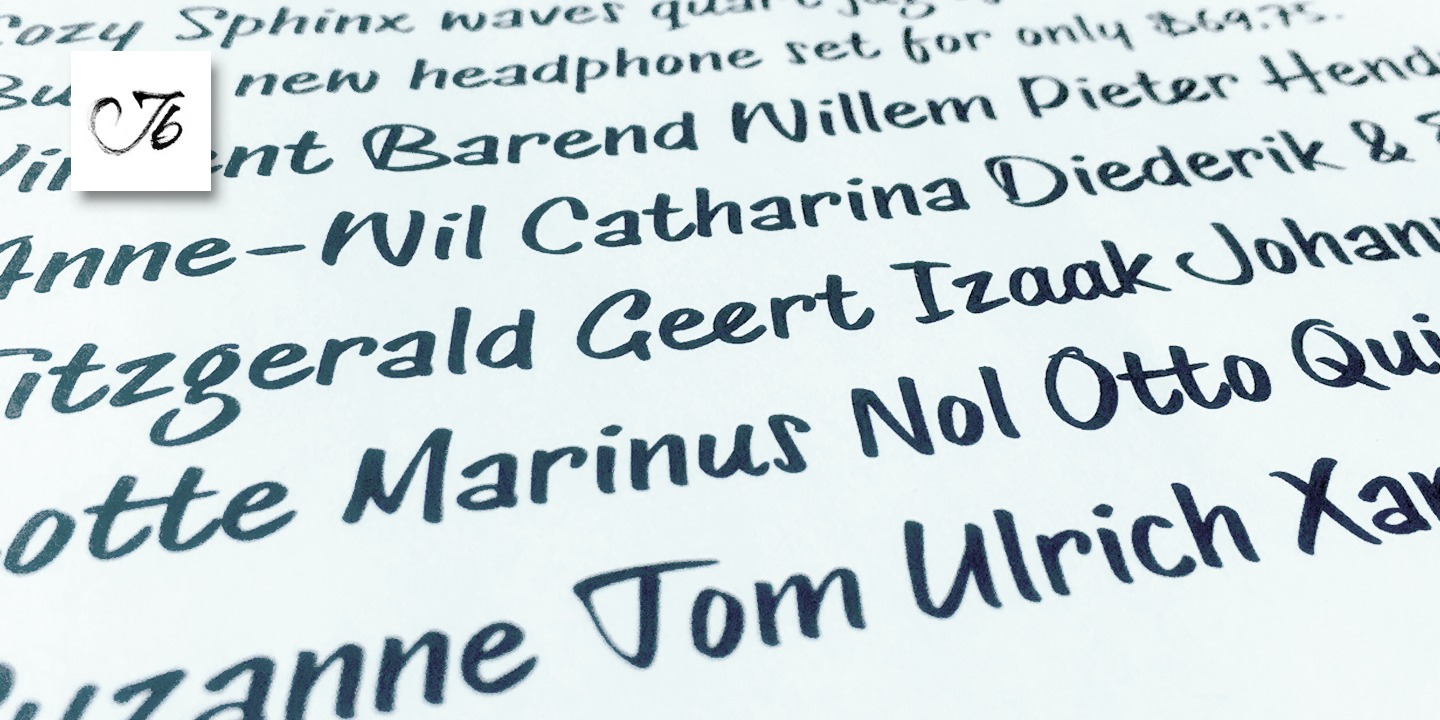 Cozy Sphinx waves quart jug
Bu new headphone set for only $69.75.
Jb
Vin ent Barend Willem Pieter Hend
Anne-Wil Catharina Diederik &
Fitzgerald Geert Izaak Johann
otte Marinus Nol Otto Qui
Suzanne Tom Ulrich Xan